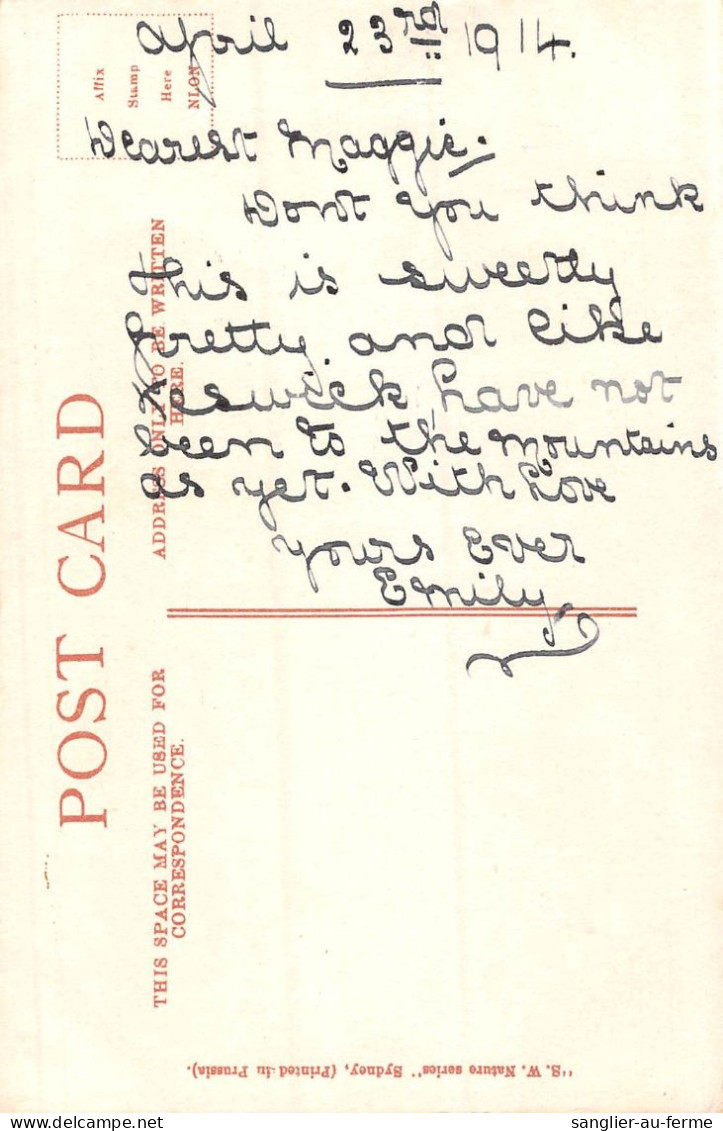 April 23rd 1914.
Dearest Maggie.
Dont you think
this is sweetly
pretty and like
Keswick, have not
been to the mountains
as yet. With love
yours Ever
Emily
Affix
Stamp
Here
NLON
POST CARD
ADDRESS ONLY TO BE WRITTEN
HERE.
THIS SPACE MAY BE USED FOR
CORRESPONDENCE.
"S. W. Nature series" Sydney, (Printed in Prussia).
sanglier-au-ferme